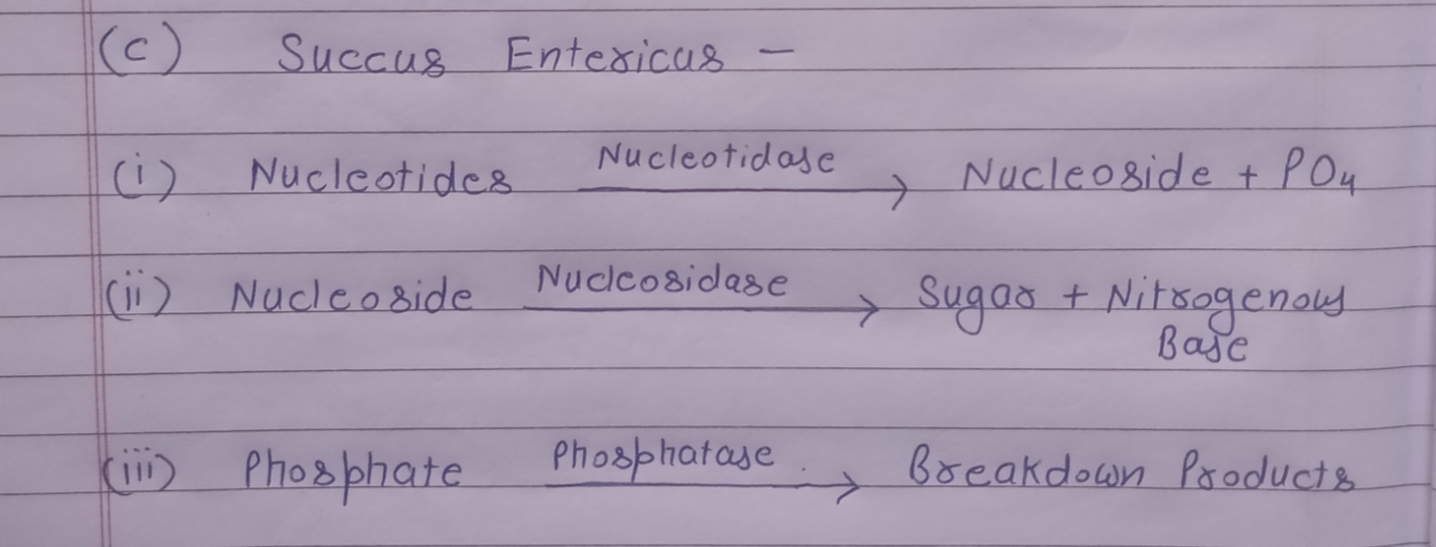 (c) Succus Entericus –
(i) Nucleotides Nucleotidase → Nucleoside + PO₄
(ii) Nucleoside Nucleosidase → Sugar + Nitrogenous
Base
(iii) Phosphate Phosphatase → Breakdown Products